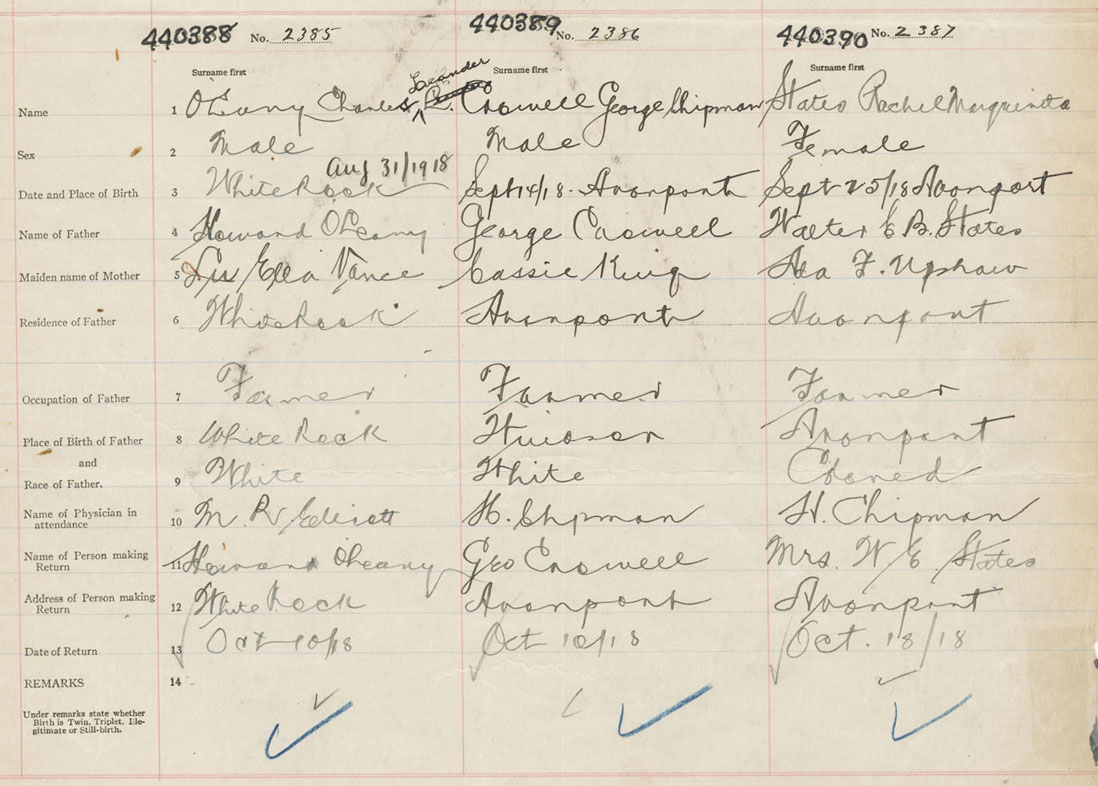 440388 No. 2385 440389 No. 2386 440390 No. 2387
Surname first Surname first Surname first
Leander
Name 1 O'Leary Charles Crowell George Chipman States Rachel Marquineta
Sex 2 Male Male Female
Aug 31/1918
Date and Place of Birth 3 White Rock Sept 14/18. Avonport Sept 25/18 Avonport
Name of Father 4 Howard O'Leary George Crowell Walter E B. States
Maiden name of Mother 5 Ella Vance Cassie King Ada F. Upshaw
Residence of Father 6 White Rock Avonport Avonport
Occupation of Father 7 Farmer Farmer Farmer
Place of Birth of Father 8 White Rock Windsor Avonport
and
Race of Father. 9 White White Colored
Name of Physician in
attendance 10 M. R Elliott H. Chipman H. Chipman
Name of Person making
Return 11 Howard O'Leary Geo Crowell Mrs. W. E. States
Address of Person making
Return 12 White Rock Avonport Avonport
Date of Return 13 Oct 10/18 Oct 10/18 Oct. 18/18
REMARKS 14
Under remarks state whether
Birth is Twin, Triplet, Ille-
gitimate or Still-birth.